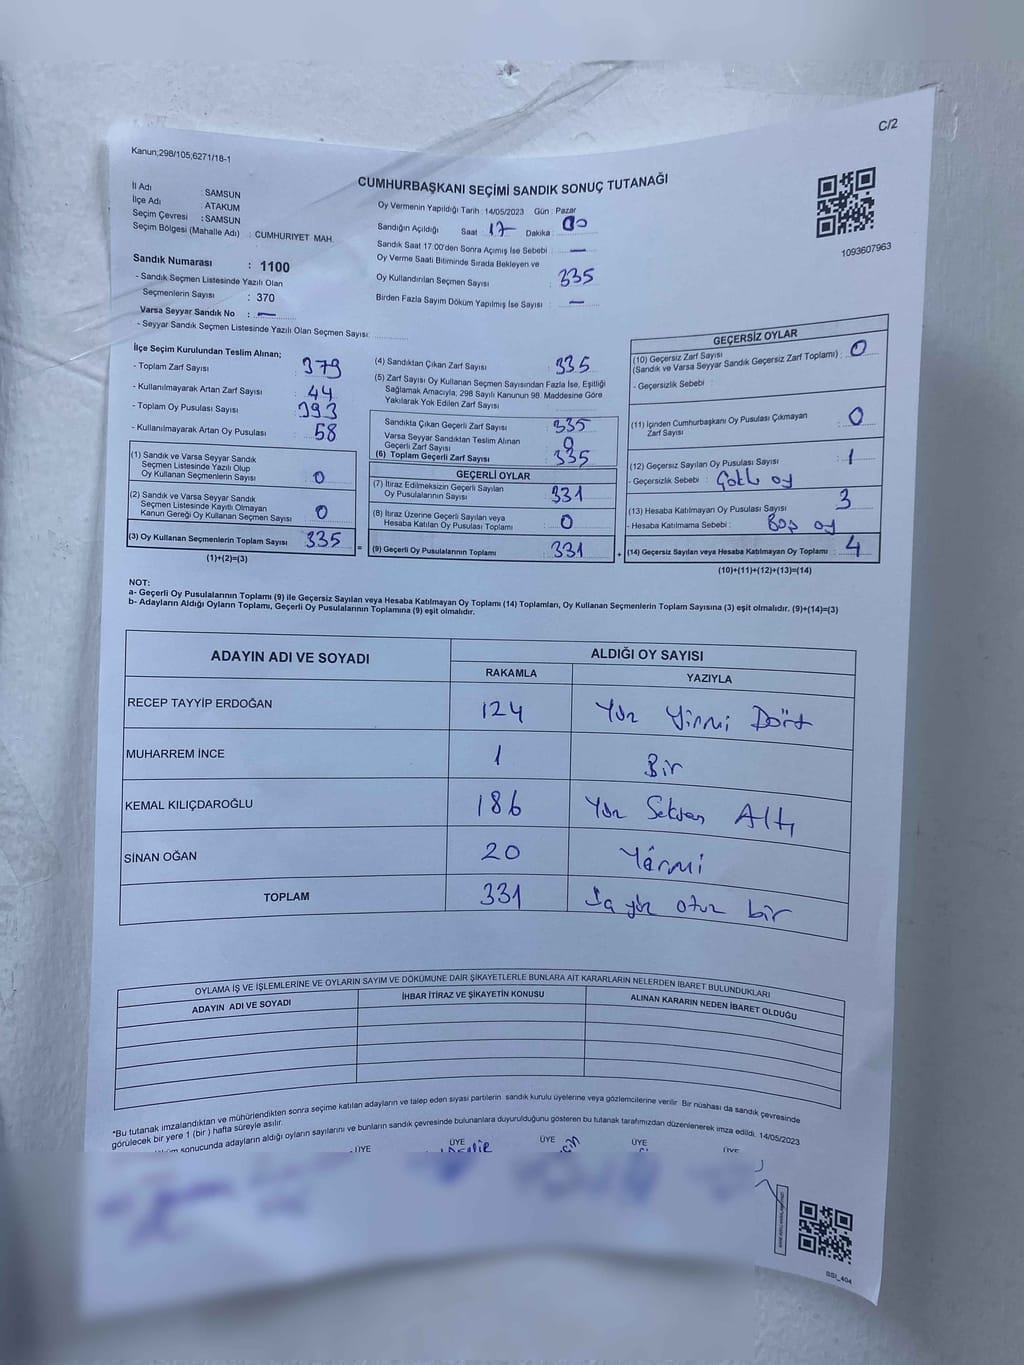 C/2
Kanun;298/105,6271/18-1
CUMHURBAŞKANI SEÇİMİ SANDIK SONUÇ TUTANAĞI
İl Adı : SAMSUN
İlçe Adı : ATAKUM
Seçim Çevresi : SAMSUN
Seçim Bölgesi (Mahalle Adı) : CUMHURIYET MAH.
Sandık Numarası : 1100
- Sandık Seçmen Listesinde Yazılı Olan
Seçmenlerin Sayısı : 370
Varsa Seyyar Sandık No : —
- Seyyar Sandık Seçmen Listesinde Yazılı Olan Seçmen Sayısı:
Oy Vermenin Yapıldığı Tarih : 14/05/2023 Gün : Pazar
Sandığın Açıldığı Saat 17 Dakika : 00
Sandık Saat 17.00'den Sonra Açımış İse Sebebi : —
Oy Verme Saati Bitiminde Sırada Bekleyen ve
Oy Kullandırılan Seçmen Sayısı : 335
Birden Fazla Sayım Döküm Yapılmış İse Sayısı : —
1093607963
İlçe Seçim Kurulundan Teslim Alınan;
- Toplam Zarf Sayısı : 379
- Kullanılmayarak Artan Zarf Sayısı : 44
- Toplam Oy Pusulası Sayısı : 393
- Kullanılmayarak Artan Oy Pusulası : 58
(1) Sandık ve Varsa Seyyar Sandık
Seçmen Listesinde Yazılı Olup
Oy Kullanan Seçmenlerin Sayısı : 0
(2) Sandık ve Varsa Seyyar Sandık
Seçmen Listesinde Kayıtlı Olmayan
Kanun Gereği Oy Kullanan Seçmen Sayısı : 0
(3) Oy Kullanan Seçmenlerin Toplam Sayısı : 335
(1)+(2)=(3)
(4) Sandıktan Çıkan Zarf Sayısı : 335
(5) Zarf Sayısı Oy Kullanan Seçmen Sayısından Fazla İse, Eşitliği
Sağlamak Amacıyla; 298 Sayılı Kanunun 98. Maddesine Göre
Yakılarak Yok Edilen Zarf Sayısı
Sandıkta Çıkan Geçerli Zarf Sayısı : 335
Varsa Seyyar Sandıktan Teslim Alınan
Geçerli Zarf Sayısı : 0
(6) Toplam Geçerli Zarf Sayısı : 335
GEÇERLİ OYLAR
(7) İtiraz Edilmeksizin Geçerli Sayılan
Oy Pusulalarının Sayısı : 331
(8) İtiraz Üzerine Geçerli Sayılan veya
Hesaba Katılan Oy Pusulası Toplamı : 0
= (9) Geçerli Oy Pusulalarının Toplamı : 331
GEÇERSİZ OYLAR
(10) Geçersiz Zarf Sayısı
(Sandık ve Varsa Seyyar Sandık Geçersiz Zarf Toplamı) : 0
- Geçersizlik Sebebi :
(11) İçinden Cumhurbaşkanı Oy Pusulası Çıkmayan
Zarf Sayısı : 0
(12) Geçersiz Sayılan Oy Pusulası Sayısı : 1
- Geçersizlik Sebebi : Çoklu oy
(13) Hesaba Katılmayan Oy Pusulası Sayısı : 3
- Hesaba Katılmama Sebebi : Boş oy
+ (14) Geçersiz Sayılan veya Hesaba Katılmayan Oy Toplamı : 4
(10)+(11)+(12)+(13)=(14)
NOT:
a- Geçerli Oy Pusulalarının Toplamı (9) ile Geçersiz Sayılan veya Hesaba Katılmayan Oy Toplamı (14) Toplamları, Oy Kullanan Seçmenlerin Toplam Sayısına (3) eşit olmalıdır. (9)+(14)=(3)
b- Adayların Aldığı Oyların Toplamı, Geçerli Oy Pusulalarının Toplamına (9) eşit olmalıdır.
ADAYIN ADI VE SOYADI ALDIĞI OY SAYISI
RAKAMLA YAZIYLA
RECEP TAYYİP ERDOĞAN 124 Yüz Yirmi Dört
MUHARREM İNCE 1 Bir
KEMAL KILIÇDAROĞLU 186 Yüz Seksen Altı
SİNAN OĞAN 20 Yirmi
TOPLAM 331 otuz bir
OYLAMA İŞ VE İŞLEMLERİNE VE OYLARIN SAYIM VE DÖKÜMÜNE DAİR ŞİKAYETLERLE BUNLARA AİT KARARLARIN NELERDEN İBARET BULUNDUKLARI
ADAYIN ADI VE SOYADI İHBAR İTİRAZ VE ŞİKAYETİN KONUSU ALINAN KARARIN NEDEN İBARET OLDUĞU
*Bu tutanak imzalandıktan ve mühürlendikten sonra seçime katılan adayların ve talep eden siyasi partilerin sandık kurulu üyelerine veya gözlemcilerine verilir. Bir nüshası da sandık çevresinde
görülecek bir yere 1 (bir) hafta süreyle asılır.
sonucunda adayların aldığı oyların sayılarını ve bunların sandık çevresinde bulunanlara duyurulduğunu gösteren bu tutanak tarafımızdan düzenlenerek imza edildi. 14/05/2023
ÜYE ÜYE ÜYE ÜYE ÜYE
SSI_404